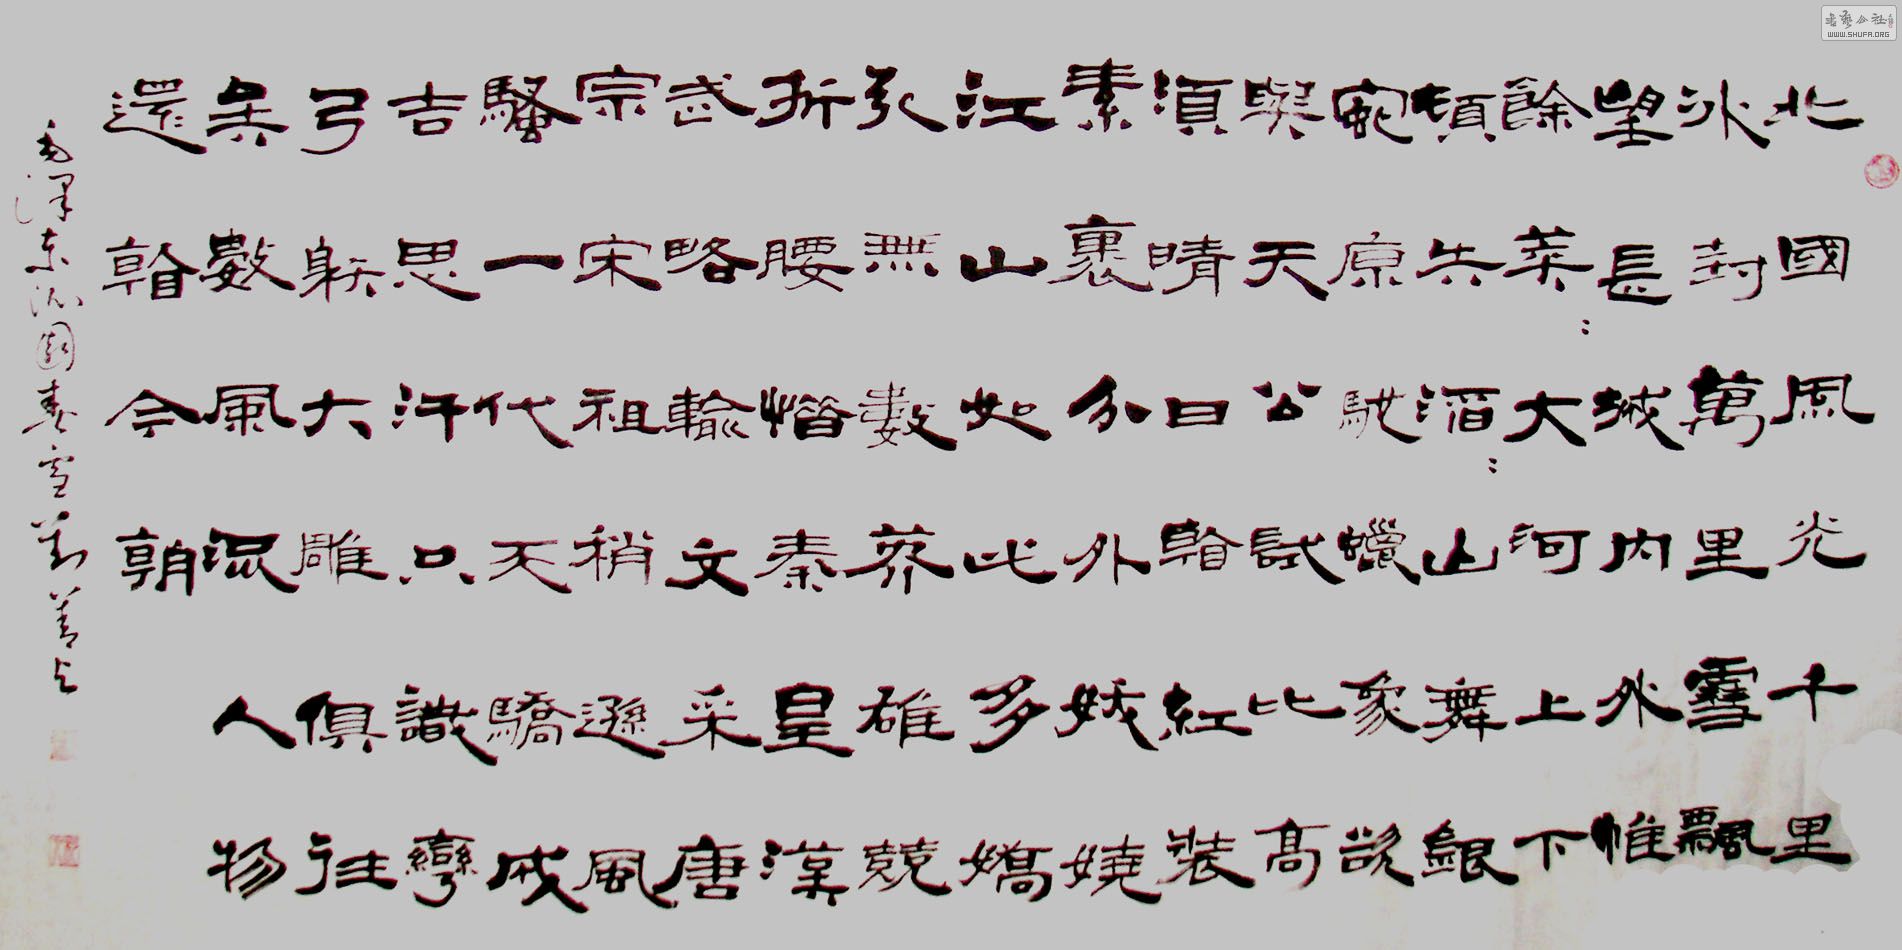 北國風光千里
冰封萬里雪飄
望長城内外惟
餘莽：大河上下
頓失滔：山舞銀
蛇原馳蠟象欲
與天公試比高
須晴日看紅裝
素裹分外妖嬈
江山如此多嬌
引無數英雄競
折腰惜秦皇漢
武略輸文采唐
宗宋祖稍遜風
騷一代天驕成
吉思汗只識彎
弓射大雕俱往
矣數風流人物
還看今朝
毛澤東沁園春雪
书艺公社
WWW.SHUFA.ORG